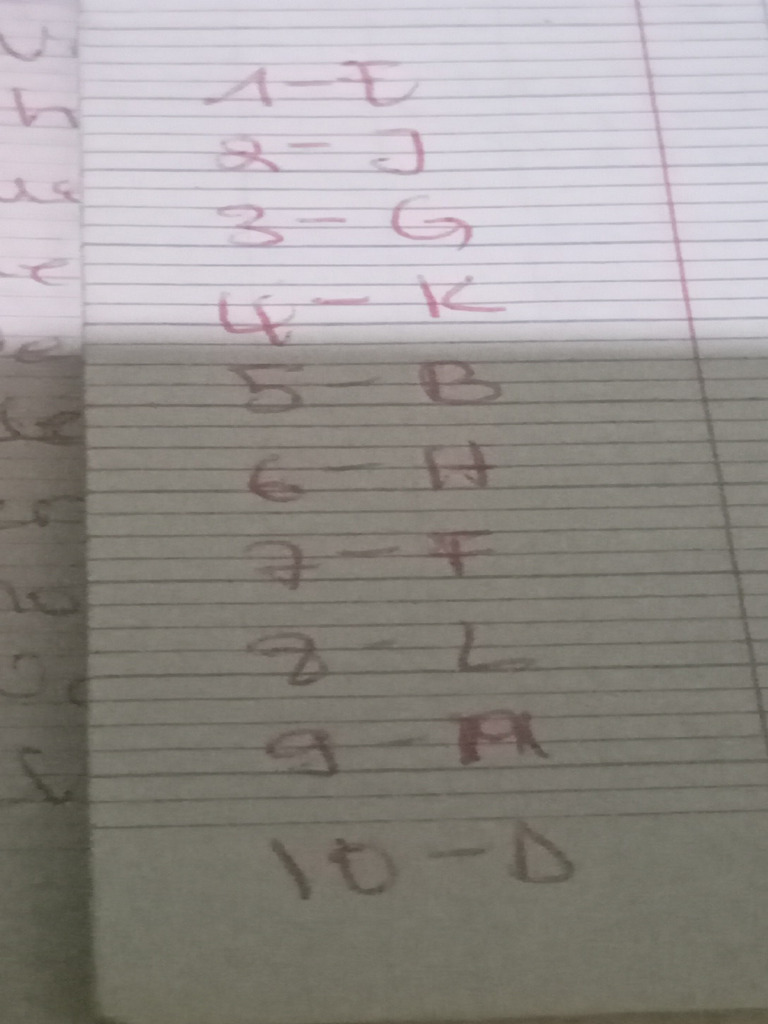 1 - E
2 - J
3 - G
4 - K
5 - B
6 - H
7 - F
8 - L
9 - A
10 - D